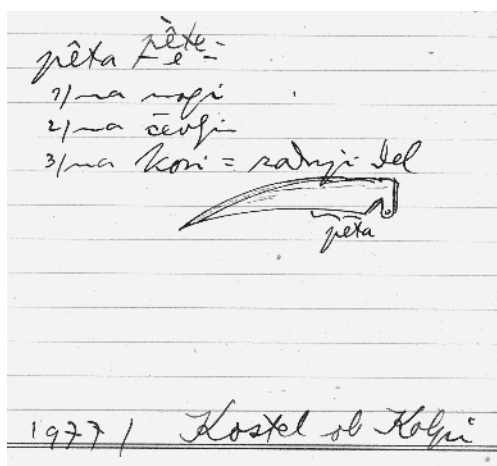 pȇta pȅte
1/ na nogi
2/ na čevlji
3/ na kosi = zadnji del
peta
1977/ Kostel ob Kolpi